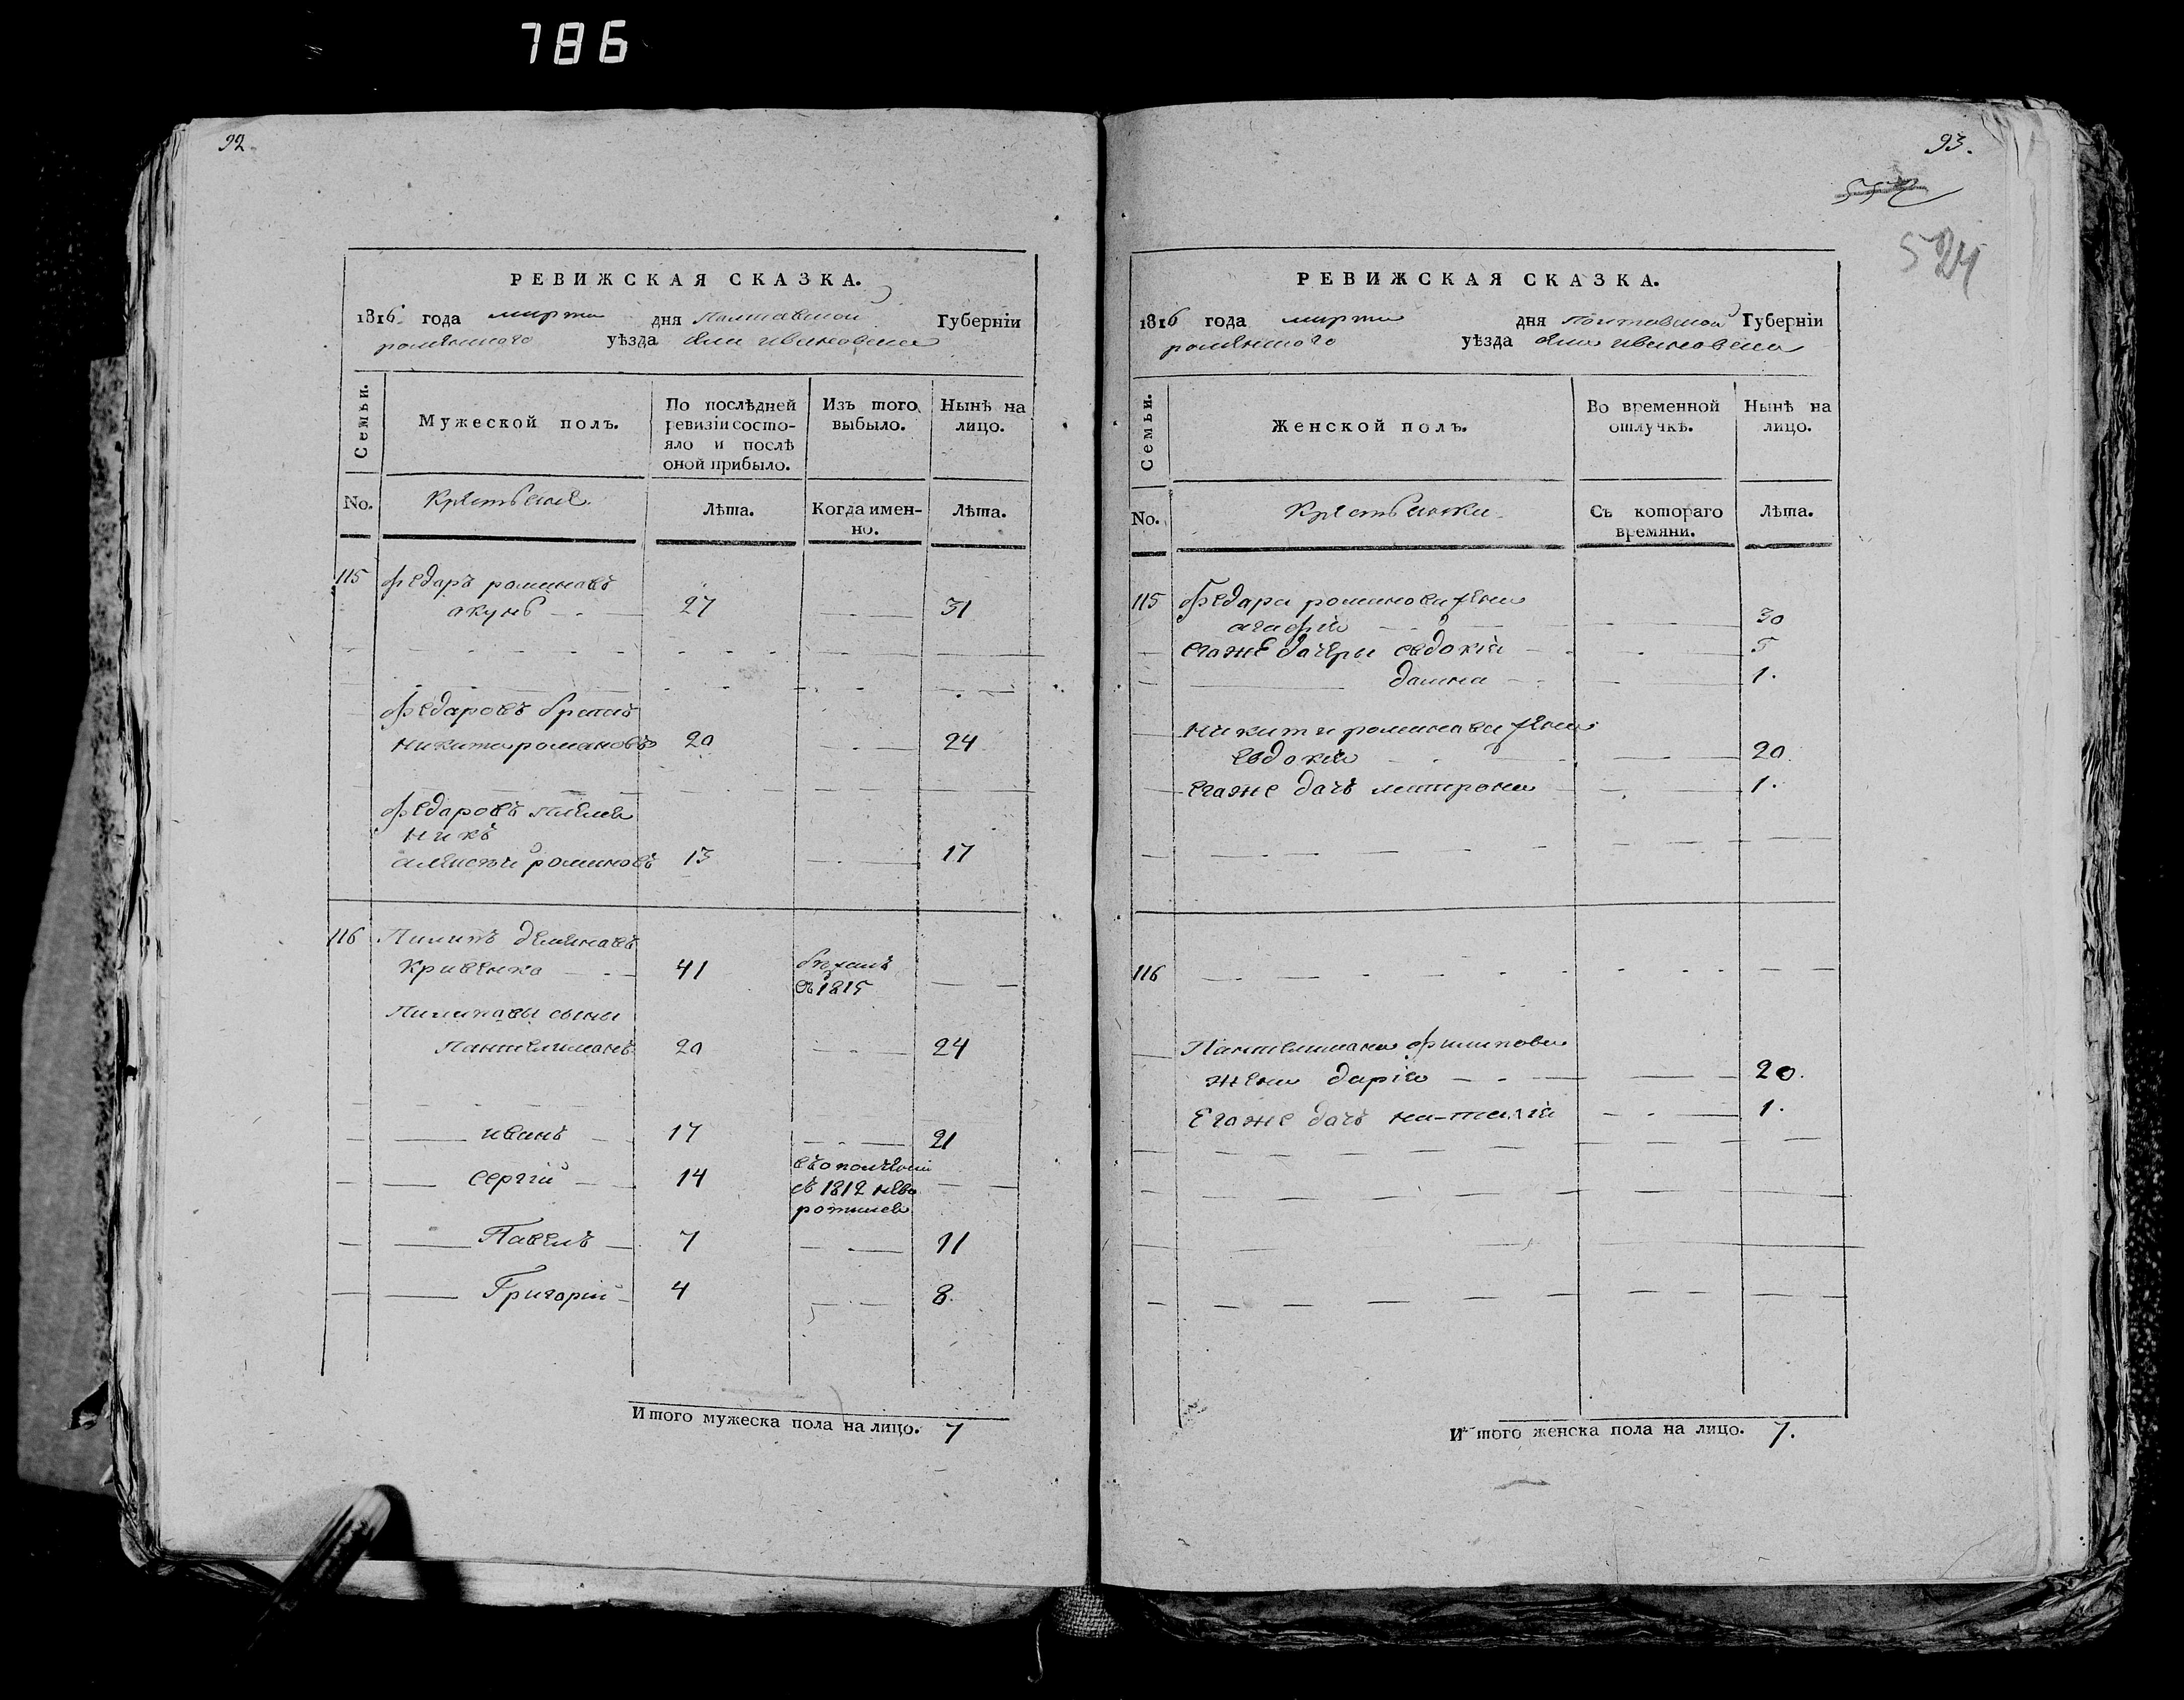 786
92
РЕВИЖСКАЯ СКАЗКА.
1816 года марта дня Полтавской Губерніи
роменского уѣзда села ивановки
Семьи.
Мужеской полъ.
По послѣдней ревизіи состояло и послѣ оной прибыло.
Изъ того выбыло.
Нынѣ на лицо.
No. Крестьяне
Лѣта.
Когда именно.
Лѣта.
115 федаръ романовъ
акунь 27 31
федаровъ братъ
никита романовъ 20 24
федаровъ племян
никъ
алексѣй романовъ 13 17
116 Пилипъ демяновъ
Кривенко 41 бѣжалъ
въ 1815
Пилиповы сыны
Пантелимонъ 20 24
иванъ 17 21
сергій 14 въ ополченіи
съ 1812 не во
ротился
Павелъ 7 11
Григорій 4 8.
Итого мужеска пола на лицо. 7
93.
524
РЕВИЖСКАЯ СКАЗКА.
1816 года марта дня полтавской Губерніи
роменского уѣзда села ивановки
Семьи.
Женской полъ.
Во временной отлучкѣ.
Нынѣ на лицо.
No. Крестьянки
Съ котораго времяни.
Лѣта.
115 Федара романова жена
агафія 30
егоже дачеры евдокія 5
домна 1.
никиты романова жена
Евдокія 20
егоже дочь матрона 1.
116
Пантелимона филипова
жена дарія 20.
Егоже дочь наталія 1.
Итого женска пола на лицо. 7.